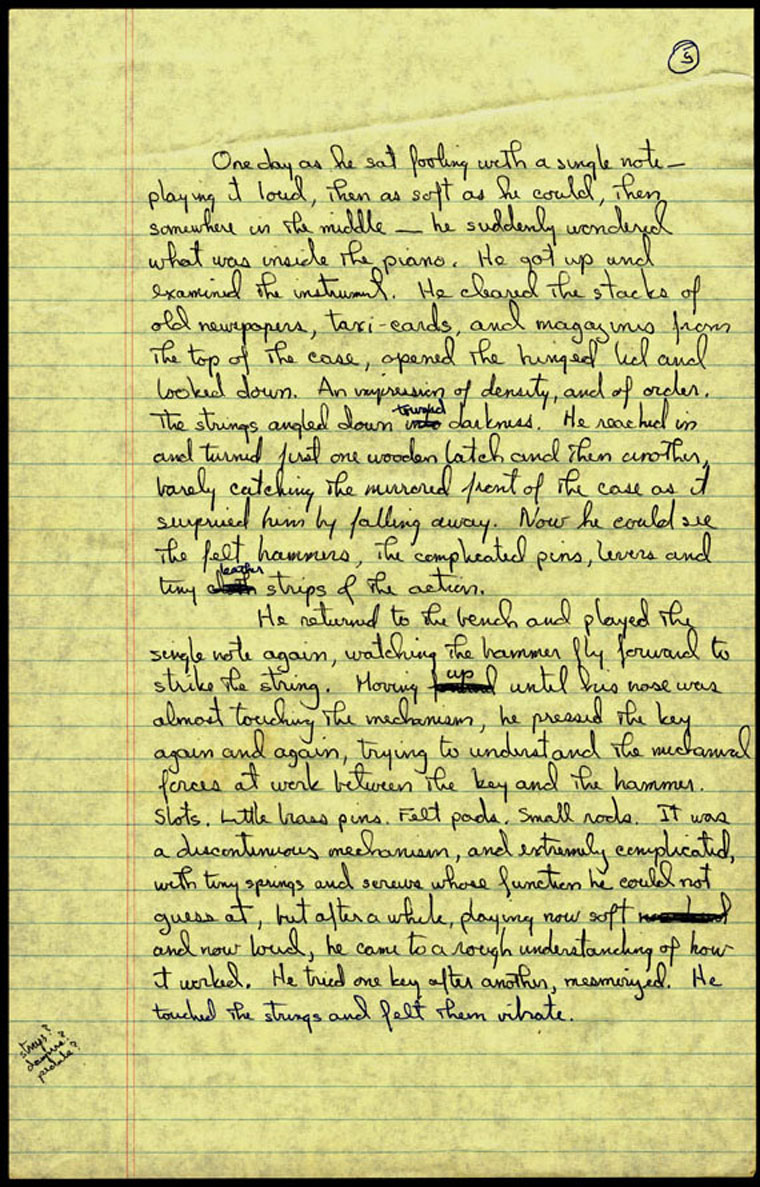 5
One day as he sat fooling with a single note —
playing it loud, then as soft as he could, then
somewhere in the middle — he suddenly wondered
what was inside the piano. He got up and
examined the instrument. He cleared the stacks of
old newspapers, taxi-cards, and magazines from
the top of the case, opened the hinged lid and
looked down. An impression of density, and of order.
The strings angled down into toward darkness. He reached in
and turned first one wooden latch and then another,
barely catching the mirrored front of the case as it
surprised him by falling away. Now he could see
the felt hammers, the complicated pins, levers and
tiny cloth leather strips of the action.
He returned to the bench and played the
single note again, watching the hammer fly forward to
strike the string. Moving up until his nose was
almost touching the mechanism, he pressed the key
again and again, trying to understand the mechanical
forces at work between the key and the hammer.
Slots. Little brass pins. Felt pads. Small rods. It was
a discontinuous mechanism, and extremely complicated,
with tiny springs and screws whose function he could not
guess at, but after a while, playing now soft
and now loud, he came to a rough understanding of how
it worked. He tried one key after another, mesmerized. He
touched the strings and felt them vibrate.
strings?
pedals?